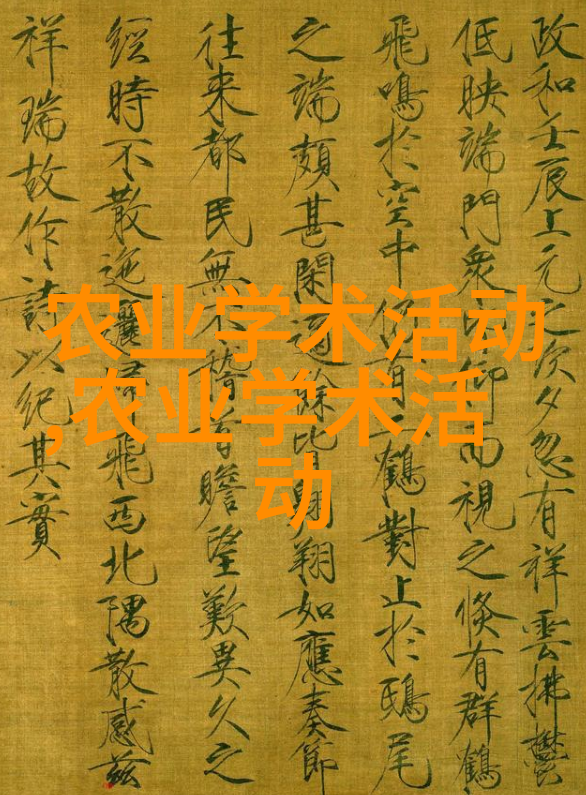 政和壬辰上元之次夕忽有祥雲拂鬱
低映端門眾皆仰而視之倏有群鶴
飛鳴於空中仍有二鶴對止於鴟尾
之端頗甚閑適餘皆翱翔如應奏節
往來都民無不稽首瞻望歎異久之
經時不散迤邐歸飛西北隅散感茲
祥瑞故作詩以紀其實
农业学术活动
,农业学术活
动